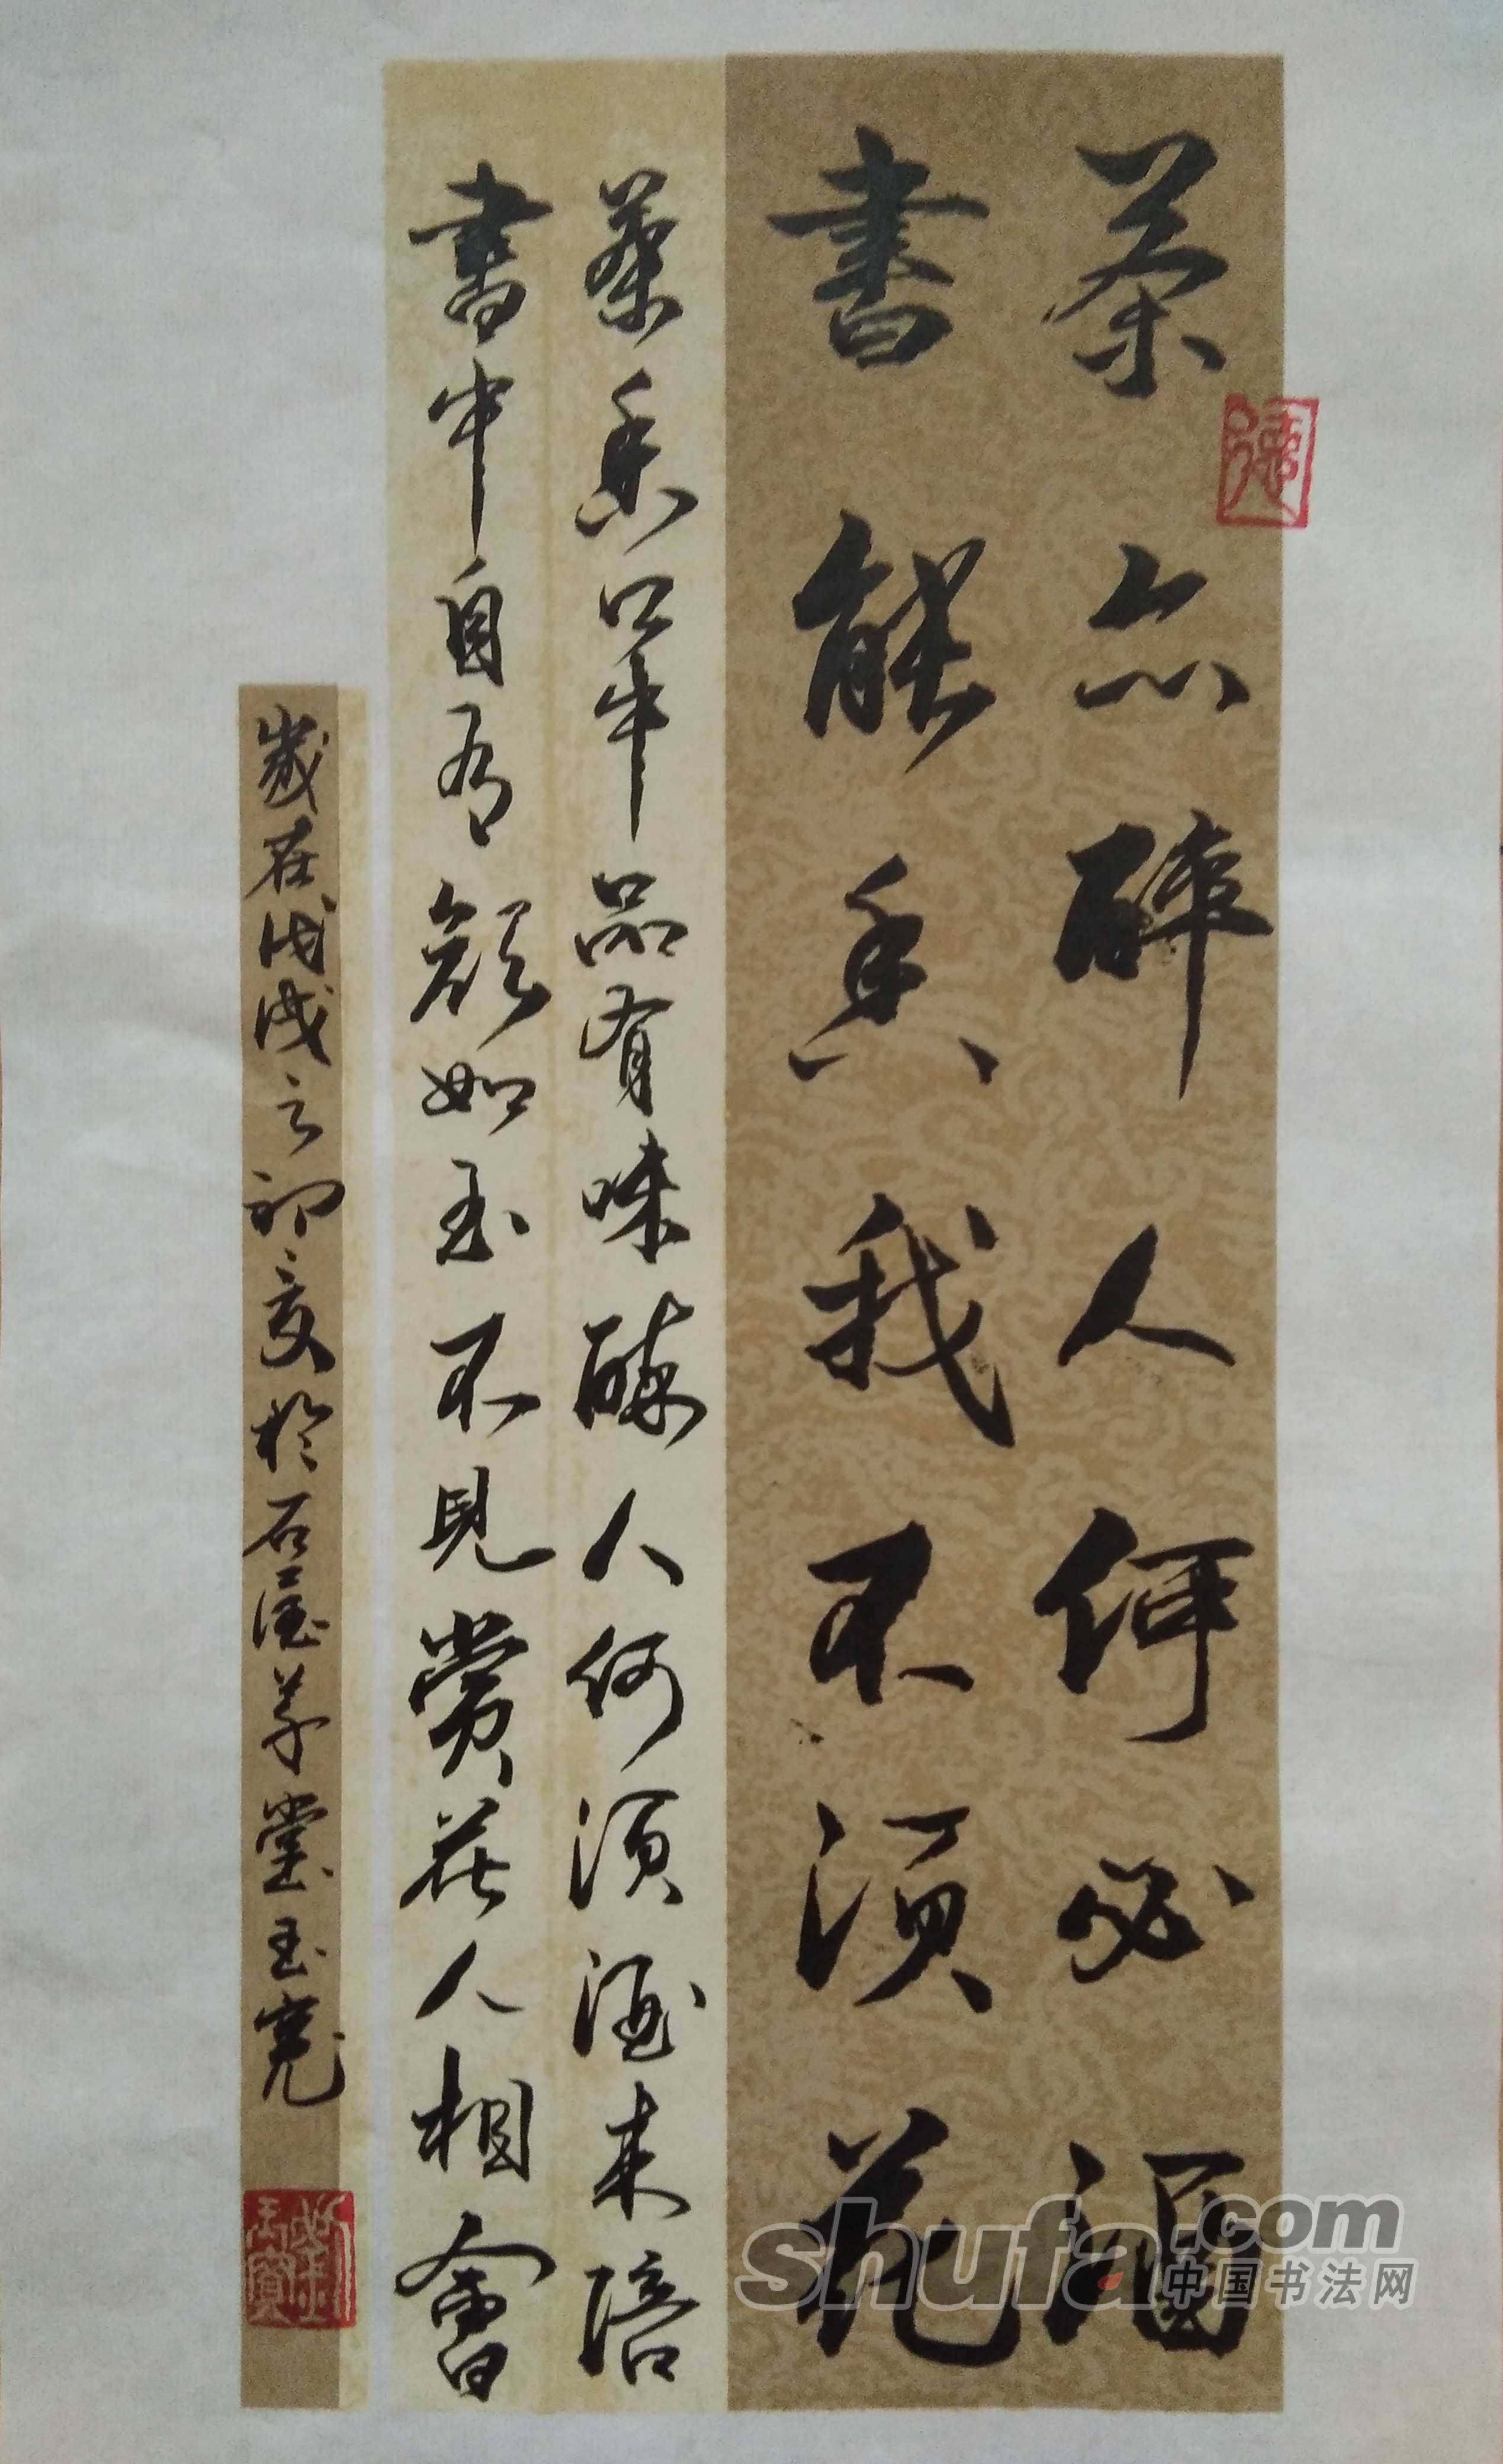 茶亦醉人何必酒
書能香我不須花
茶香口中品有味醉人何須酒來陪
書中自有顏如玉不見賞花人相會
歲在戊戌之初夏於石草堂玉
shufa.com
中国书法网